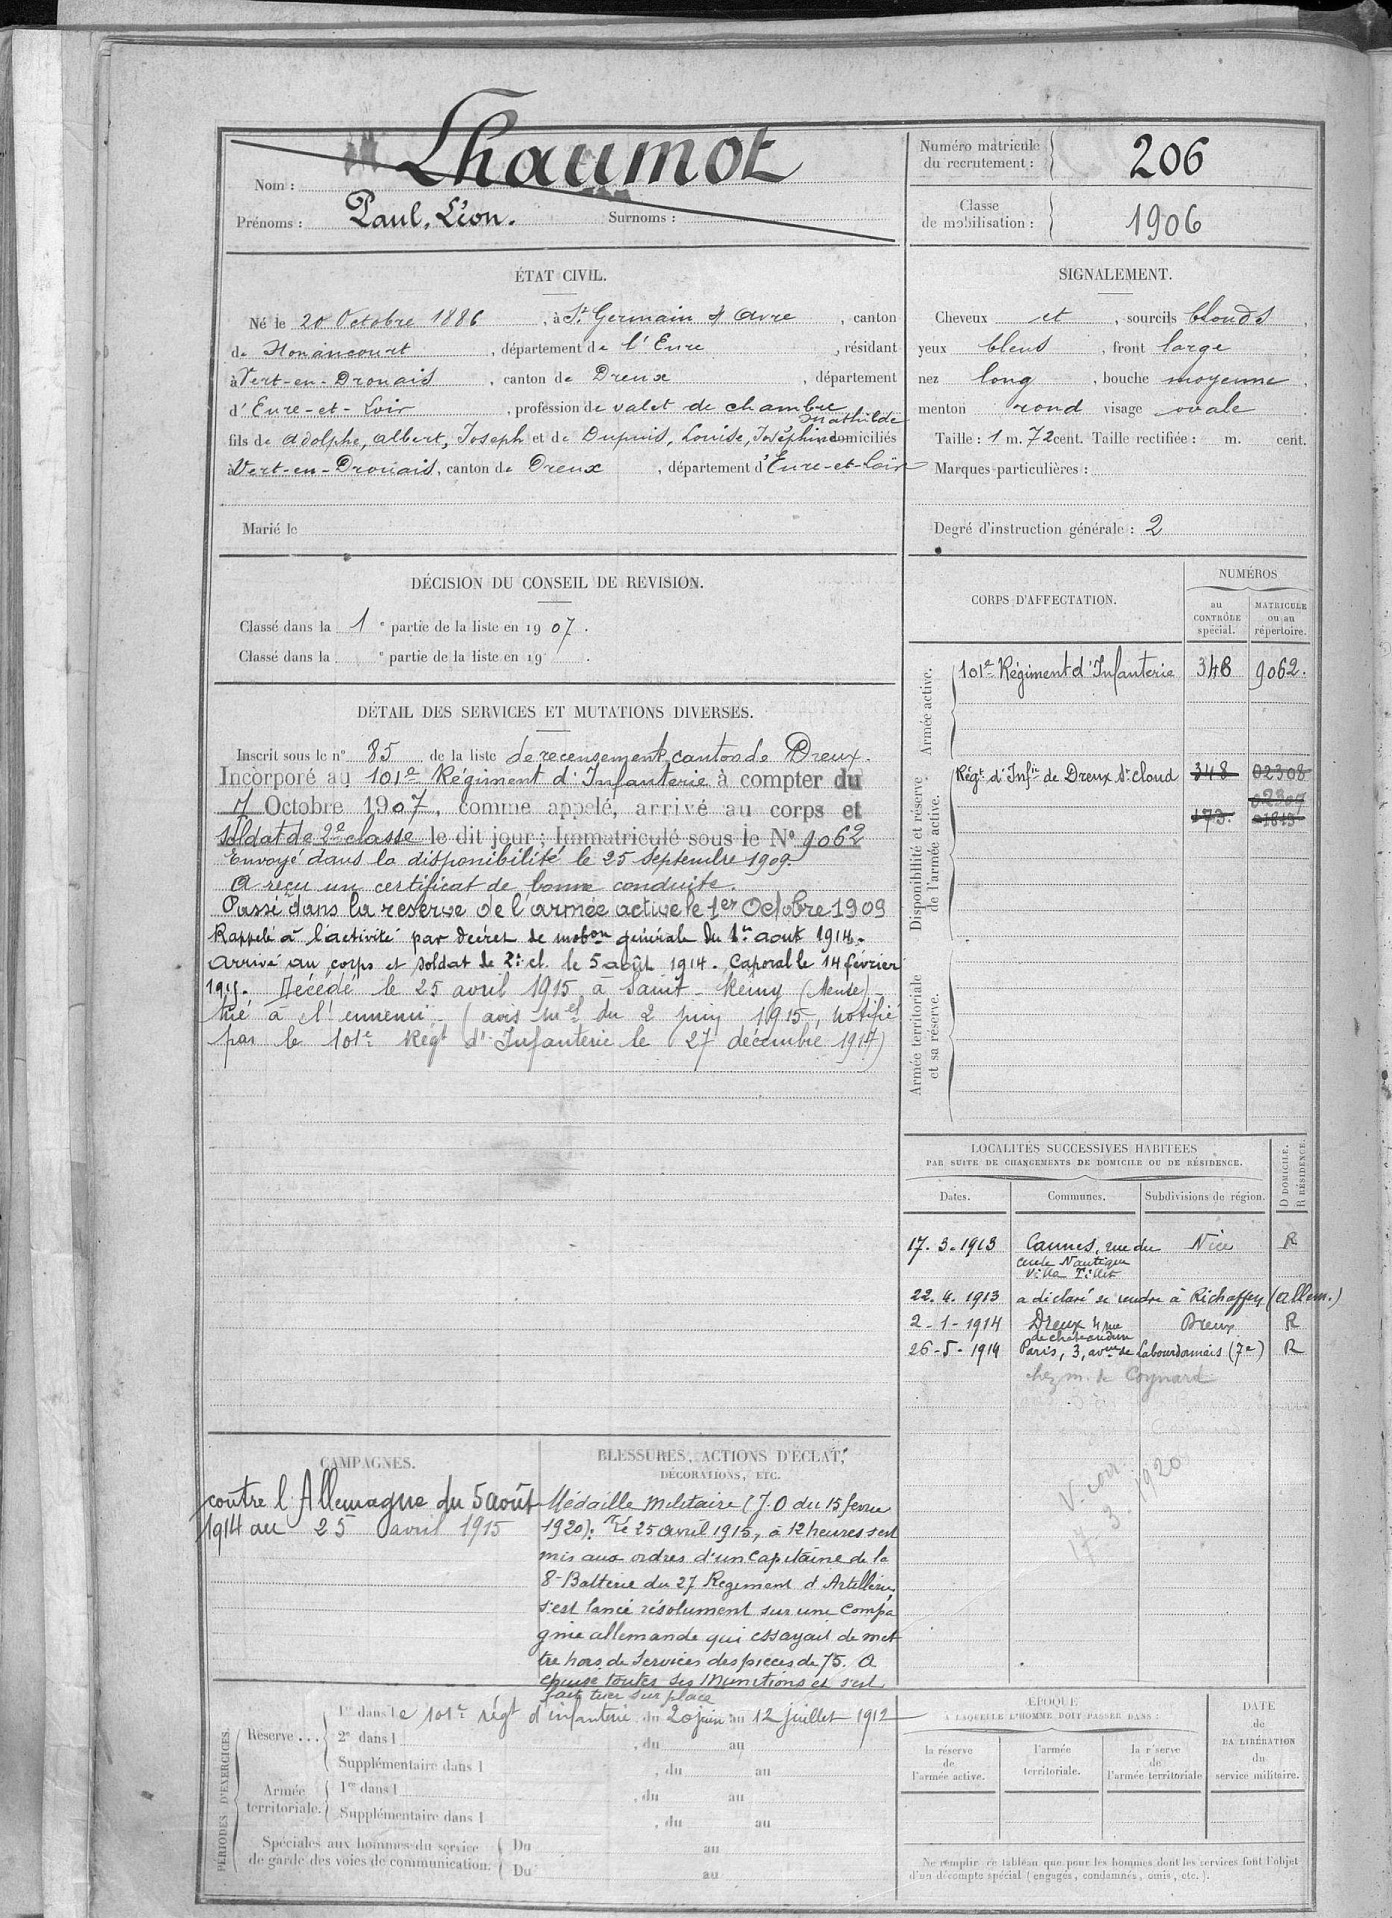 Nom : Lhaumot
Prénoms : Paul, Léon. Surnoms :
Numéro matricule du recrutement : 206
Classe de mobilisation : 1906
ÉTAT CIVIL.
Né le 20 Octobre 1886, à St Germain s/ Avre, canton
de Nonancourt, département de l'Eure, résidant
à Vert-en-Drouais, canton de Dreux, département
d'Eure-et-Loir, profession de valet de chambre
Mathilde
fils de Adolphe, Albert, Joseph et de Dupuis, Louise, Joséphine domiciliés
à Vert-en-Drouais, canton de Dreux, département d'Eure-et-Loir
Marié le
SIGNALEMENT.
Cheveux et, sourcils blonds,
yeux bleus, front large,
nez long, bouche moyenne,
menton rond visage ovale
Taille : 1 m. 72 cent. Taille rectifiée : m. cent.
Marques particulières :
Degré d'instruction générale : 2
DÉCISION DU CONSEIL DE REVISION.
Classé dans la 1e partie de la liste en 1907.
Classé dans la e partie de la liste en 19 .
DÉTAIL DES SERVICES ET MUTATIONS DIVERSES.
Inscrit sous le n° 85 de la liste de recensement, canton de Dreux.
Incorporé au 101e Régiment d'Infanterie à compter du
7 Octobre 1907, comme appelé, arrivé au corps et
soldat de 2e classe le dit jour ; Immatriculé sous le N° 9062
Envoyé dans la disponibilité le 25 septembre 1909
A reçu un certificat de bonne conduite.
Passé dans la réserve de l'armée active le 1er Octobre 1909
Rappelé à l'activité par décret de mobon générale du 1er aout 1914.
Arrivé au corps et soldat de 2e cl. le 5 août 1914. Caporal le 14 février
1915. Décédé le 25 avril 1915 à Saint-Rémy (Meuse)
tué à l'ennemi (avis mel du 2 juin 1915, notifié
par le 101e Régt d'Infanterie le 27 décembre 1917)
CORPS D'AFFECTATION.
NUMÉROS
au CONTRÔLE spécial.
MATRICULE ou au répertoire.
Armée active.
101e Régiment d'Infanterie 348 9062.
Disponibilité et réserve de l'armée active.
Régt d'Infie de Dreux St cloud 348 02308
02307
173. 01813
Armée territoriale et sa réserve.
LOCALITÉS SUCCESSIVES HABITÉES
PAR SUITE DE CHANGEMENTS DE DOMICILE OU DE RÉSIDENCE.
Dates. Communes. Subdivisions de région. D DOMICILE. R RÉSIDENCE.
17. 3. 1913 Cannes, rue du Nice R
Cercle Nautique
22. 4. 1913 a déclaré se rendre à (allem.)
2-1-1914 Dreux 4 rue Dreux R
de chateaudun
26-5-1914 Paris, 3, avue de Labourdonnais (7e) R
chez m. de Coynard
17 3 1920
CAMPAGNES.
contre l'Allemagne du 5 août
1914 au 25 avril 1915
BLESSURES, ACTIONS D'ÉCLAT,
DÉCORATIONS, ETC.
Médaille Militaire (J.O du 15 fevrier
1920) : Le 25 avril 1915, à 12 heures s'est
mis aux ordres d'un Capitaine de la
8e Batterie du 27 Regiment d'Artillerie,
s'est lancé résolument sur une Compa
gnie allemande qui essayait de met
tre hors de services des pieces de 75. A
epuisé toutes ses Munitions et s'est
fait tuer sur place
PÉRIODES D'EXERCICES.
Réserve ... 1re dans le 101e régt d'infanterie du 20 juin au 12 juillet 1912
2e dans l , du au
Supplémentaire dans l , du au
Armée territoriale. 1re dans l , du au
Supplémentaire dans l , du au
Spéciales aux hommes du service Du au
de garde des voies de communication. Du au
ÉPOQUE
A LAQUELLE L'HOMME DOIT PASSER DANS :
la réserve de l'armée active.
l'armée territoriale.
la réserve de l'armée territoriale
DATE de LA LIBÉRATION du service militaire.
Ne remplir ce tableau que pour les hommes dont les services font l'objet
d'un décompte spécial (engagés, condamnés, omis, etc.).